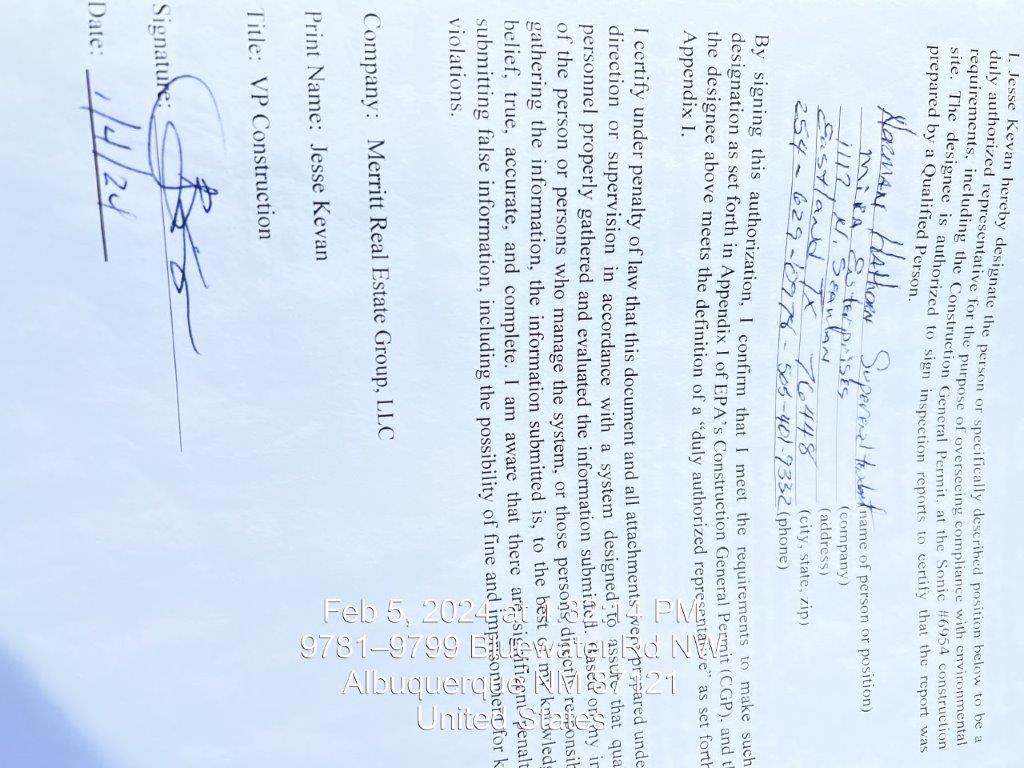 I, Jesse Kevan hereby designate the person or specifically described position below to be a
duly authorized representative for the purpose of overseeing compliance with environmental
requirements, including the Construction General Permit, at the Sonic #6954 construction
site. The designee is authorized to sign inspection reports to certify that the report was
prepared by a Qualified Person.
(name of person or position)
Enterprises (company)
1112 (address)
Eastland TX 76448 (city, state, zip)
254-629-0976 - 505-401-9332 (phone)
By signing this authorization, I confirm that I meet the requirements to make such
designation as set forth in Appendix I of EPA's Construction General Permit (CGP), and
the designee above meets the definition of a "duly authorized representative" as set forth
Appendix I.
I certify under penalty of law that this document and all attachments were prepared unde
direction or supervision in accordance with a system designed to assure that qua
personnel properly gathered and evaluated the information submitted. Based on my in
of the person or persons who manage the system, or those persons directly responsib
gathering the information, the information submitted is, to the best of my knowledg
belief, true, accurate, and complete. I am aware that there are significant penalt
submitting false information, including the possibility of fine and imprisonment for k
violations.
Company: Merritt Real Estate Group, LLC
Print Name: Jesse Kevan
Title: VP Construction
Signature:
Date: 1/4/24
Feb 5, 2024 at
9781–9799 Bluewater Rd NW
Albuquerque NM 87121
United States